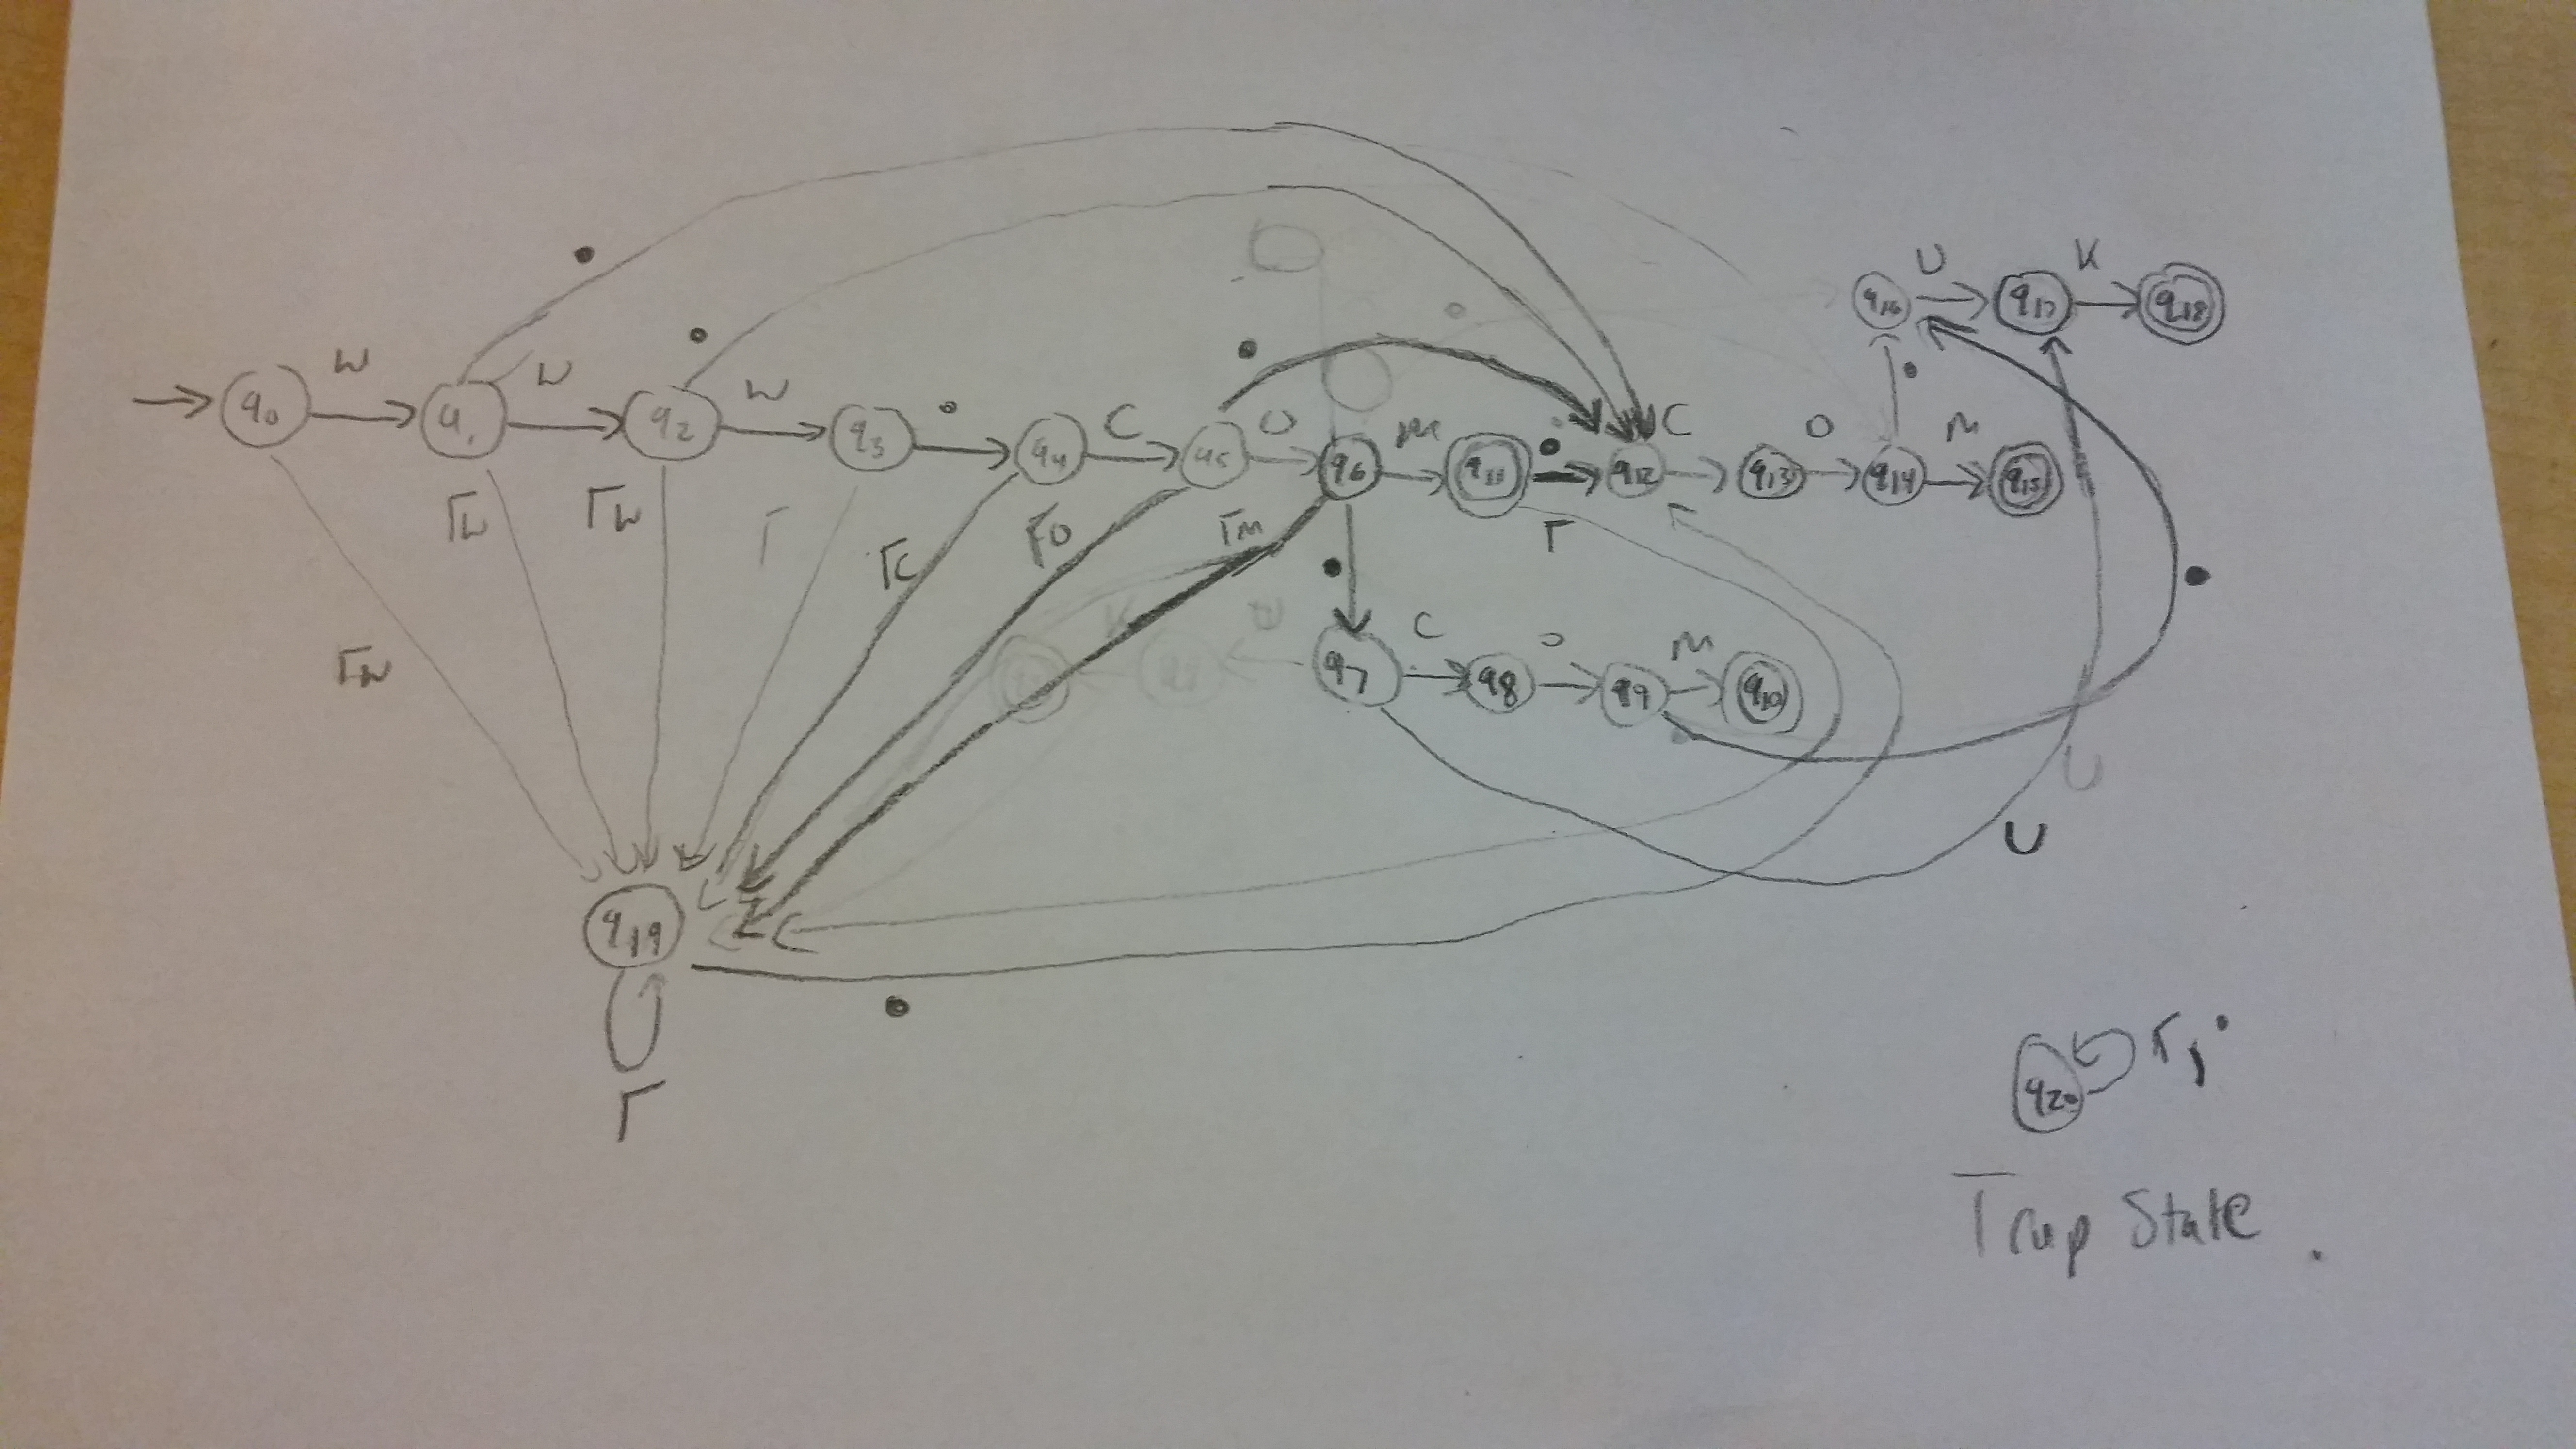 q0
w
q1
w
q2
w
q3
.
q4
C
q5
O
q6
M
q11
.
q12
C
q13
O
q14
M
q15
.
.
.
.
q16
U
q17
K
q18
Γw
Γw
Γw
Γ
Γc
Γo
Γm
.
q7
C
q8
O
q9
M
q10
Γ
U
.
q19
Γ
.
q20
Γ, .
Trap State.